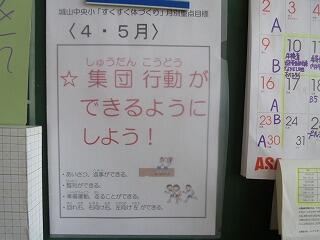 城山中央小「すくすく体づくり」月別重点目標
〈4・5月〉
しゅうだん こうどう
☆集団行動が
できるように
しよう!
・あいさつ、返事ができる。
・整列ができる。
・準備運動、走ることができる。
・回れ右、右向け右、左向け左ができる。
2
3
A
9
10
16
17
A
B5
23
B
A 30
31
ASA